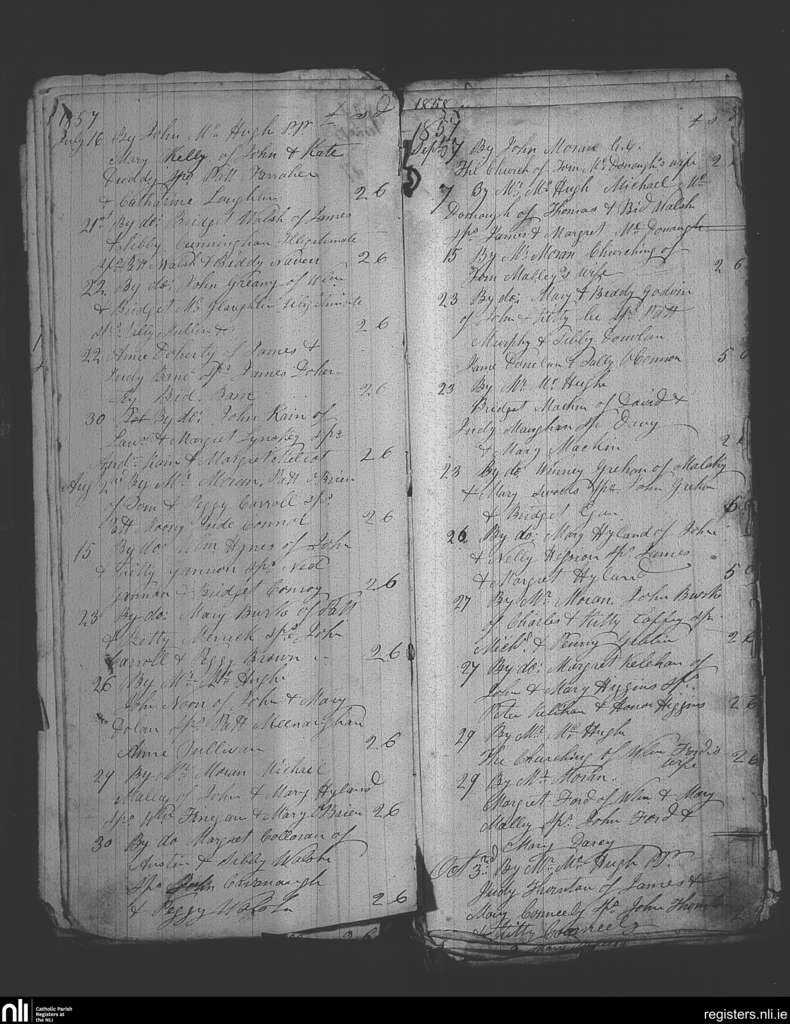 1857
£ s d
July 16 By John Mc Hugh PP
Mary Kelly of John & Kate
Cuddy Sps Patt Farraher
& Catharine Loughlin 2 6
21st By do: Bridget Walsh of James
& Sibby Cunningham Illegitimate
Sps Patt Walsh & Biddy Naveen 2 6
22 By do: John Greany of Wm
& Bridget Mc Glaughlin Illegitimate
Sps 2 6
22 Anne Doherty of James &
Judy Bane Sps James Doher
-ty Brid. Bane 2 6
30 By do: John Kain of
Lawe & Margret Sps
Kain & Margret 2 6
Aug 2nd By Mr Moran, Patt O Brien
of Tom & Peggy Carroll Sps
Patt Jude Connor 2 6
15 By do: Wm Hynes of John
& Kitty Gannon Sps Ned
Gannon & Bridget Conroy 2 6
23 By do: Mary Burke of Patt
& Betty Sps John
Carroll & Peggy Brown 2 6
26 By Mr Mc Hugh
John Noon of John & Mary
Dolan Sps Patt Meenaughan
Anne Sullivan 2 6
29 By Mr Moran Michael
Malley of John & Mary Hyland
Sps Wm Finegan & Mary O'Brien 2 6
30 By do Margret Colloran of
Austin & Sibby Walsh
Sps John Cavanaugh
& Peggy Walsh 2 6
1858
1857
Septr 7 By John Moran C.C.
The Church of Tom Mc Donough's wife 2 6
7 By Mr Mc Hugh Michael Mc
Donough of Thomas & Bid Walsh
Sps James & Margret Mc Donough
15 By Mr Moran Churching of
Tom Malley's wife 2 6
23 By do: Mary & Biddy Godwin
of John & Kitty Lee Sps Patt
Murphy & Sibby Donelan
Jame Donelan & Sally O Connor 5 0
23 By Mr Mc Hugh
Bridget Machin of David &
Judy Maughan Sps Davy
& Mary Machin 2 6
23 By do Winney Grehan of Malaky
& Mary Swords Sps John Grehan
& Bridget Egan
26 By do: Mary Hyland of John
& Nelly Hession Sps James
& Margret Hyland 5 0
27 By Mr Moran John Burke
of Charles & Kitty Caffry Sps
Michl & Penny Giblin 2 6
27 By do: Margret Kelehan of
John & Mary Higgins Sps
Peter Kelihan & Honor Higgins 2 6
29 By Mr Mc Hugh
The Churching of Wm Ford's
wife 2 6
29 By Mr Moran.
Margret Ford of Wm & Mary
Malley Sps John Ford &
Mary Darcy
Oct 3rd By Mr Mc Hugh PP
Judy Thornton of James &
Mary Conneely Sps John
& Kitty Conneely
nli Catholic Parish
Registers at
the NLI
registers.nli.ie